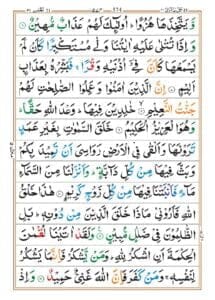 وَّيَتَّخِذَهَا هُزُوًا اُولٰٓئِكَ لَهُمْ عَذَابٌ مُّهِيْنٌ
وَاِذَا تُتْلٰى عَلَيْهِ اٰيٰتُنَا وَلّٰى مُسْتَكْبِرًا كَاَنْ لَّمْ
يَسْمَعْهَا كَاَنَّ فِيْٓ اُذُنَيْهِ وَقْرًا فَبَشِّرْهُ بِعَذَابٍ
جَنّٰتُ النَّعِيْمِ خٰلِدِيْنَ فِيْهَا وَعْدَ اللّٰهِ حَقًّا
وَهُوَ الْعَزِيْزُ الْحَكِيْمُ خَلَقَ السَّمٰوٰتِ بِغَيْرِ عَمَدٍ
تَرَوْنَهَا وَاَلْقٰى فِى الْاَرْضِ رَوَاسِيَ اَنْ تَمِيْدَ بِكُمْ
وَبَثَّ فِيْهَا مِنْ كُلِّ دَآبَّةٍ وَاَنْزَلْنَا مِنَ السَّمَآءِ
مَآءً فَاَنْۢبَتْنَا فِيْهَا مِنْ كُلِّ زَوْجٍ كَرِيْمٍ هٰذَا خَلْقُ
اللّٰهِ فَاَرُوْنِيْ مَاذَا خَلَقَ الَّذِيْنَ مِنْ دُوْنِهٖ بَلِ
الظّٰلِمُوْنَ فِيْ ضَلٰلٍ مُّبِيْنٍ وَلَقَدْ اٰتَيْنَا لُقْمٰنَ
الْحِكْمَةَ اَنِ اشْكُرْ لِلّٰهِ وَمَنْ يَّشْكُرْ فَاِنَّمَا يَشْكُرُ
لِنَفْسِهٖ وَمَنْ كَفَرَ فَاِنَّ اللّٰهَ غَنِيٌّ حَمِيْدٌ وَاِذْ